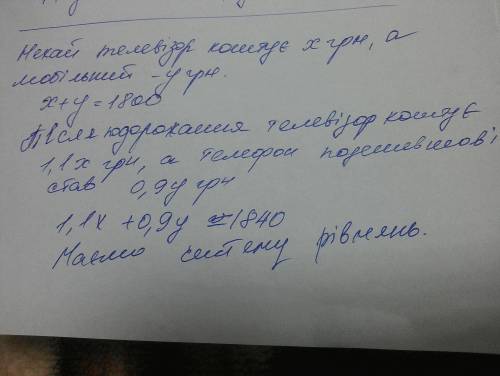 Нехай телевізор коштує x грн, а
мобільний - y грн.
x+y=1800
Після подорожання телевізор коштує
1,1x грн, а телефон подешевшав і
став 0,9y грн
1,1x +0,9y =1840
Маємо систему рівнянь.